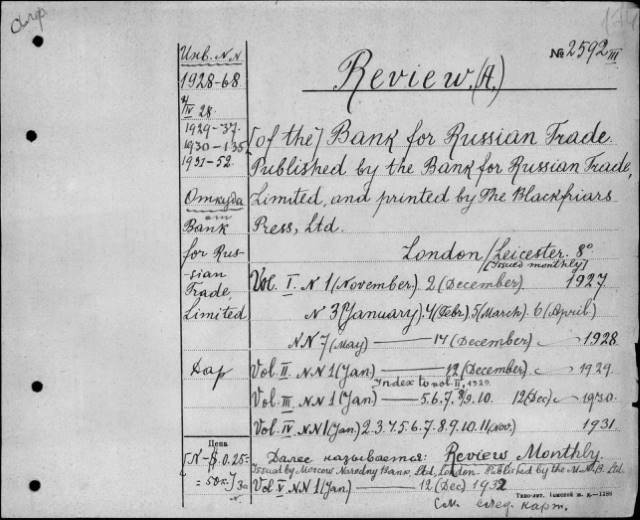 Инв. N.N
1928-68.
4/IV 28.
1929-37.
1930-135
1931-52.
Откуда
Bank
for Rus-
sian
Trade,
Limited
Дар
Цена
№ 2592 III
Review. (A.)
[of the] Bank for Russian Trade.
Published by the Bank for Russian Trade,
Limited, and printed by The Blackfriars
Press, Ltd.
London/Leicester. 8°
[Issued monthly]
Vol. I. N 1 (November) 2 (December) 1927
N 3 (January). 4 (Febr.) 5 (March). 6 (April)
NN 7 (May) — 14 (December) 1928
Vol. II. N.N 1 (Jan) — 12 (December) 1929.
Index to vol. II, 1929.
Vol. III N.N 1 (Jan) — 5. 6. 7. 8/9. 10. 12 (Dec) 1930.
Vol. IV N.N 1 (Jan) 2. 3. 4. 5. 6. 7. 8. 9. 10. 11 (Nov.) 1931.
Далее называется: Review Monthly.
Issued by Moscow Narodny Bank, Ltd, London. Published by the M.N.B. Ltd.
Vol V N.N 1 (Jan) — 12 (Dec) 1932
См. след. карт.